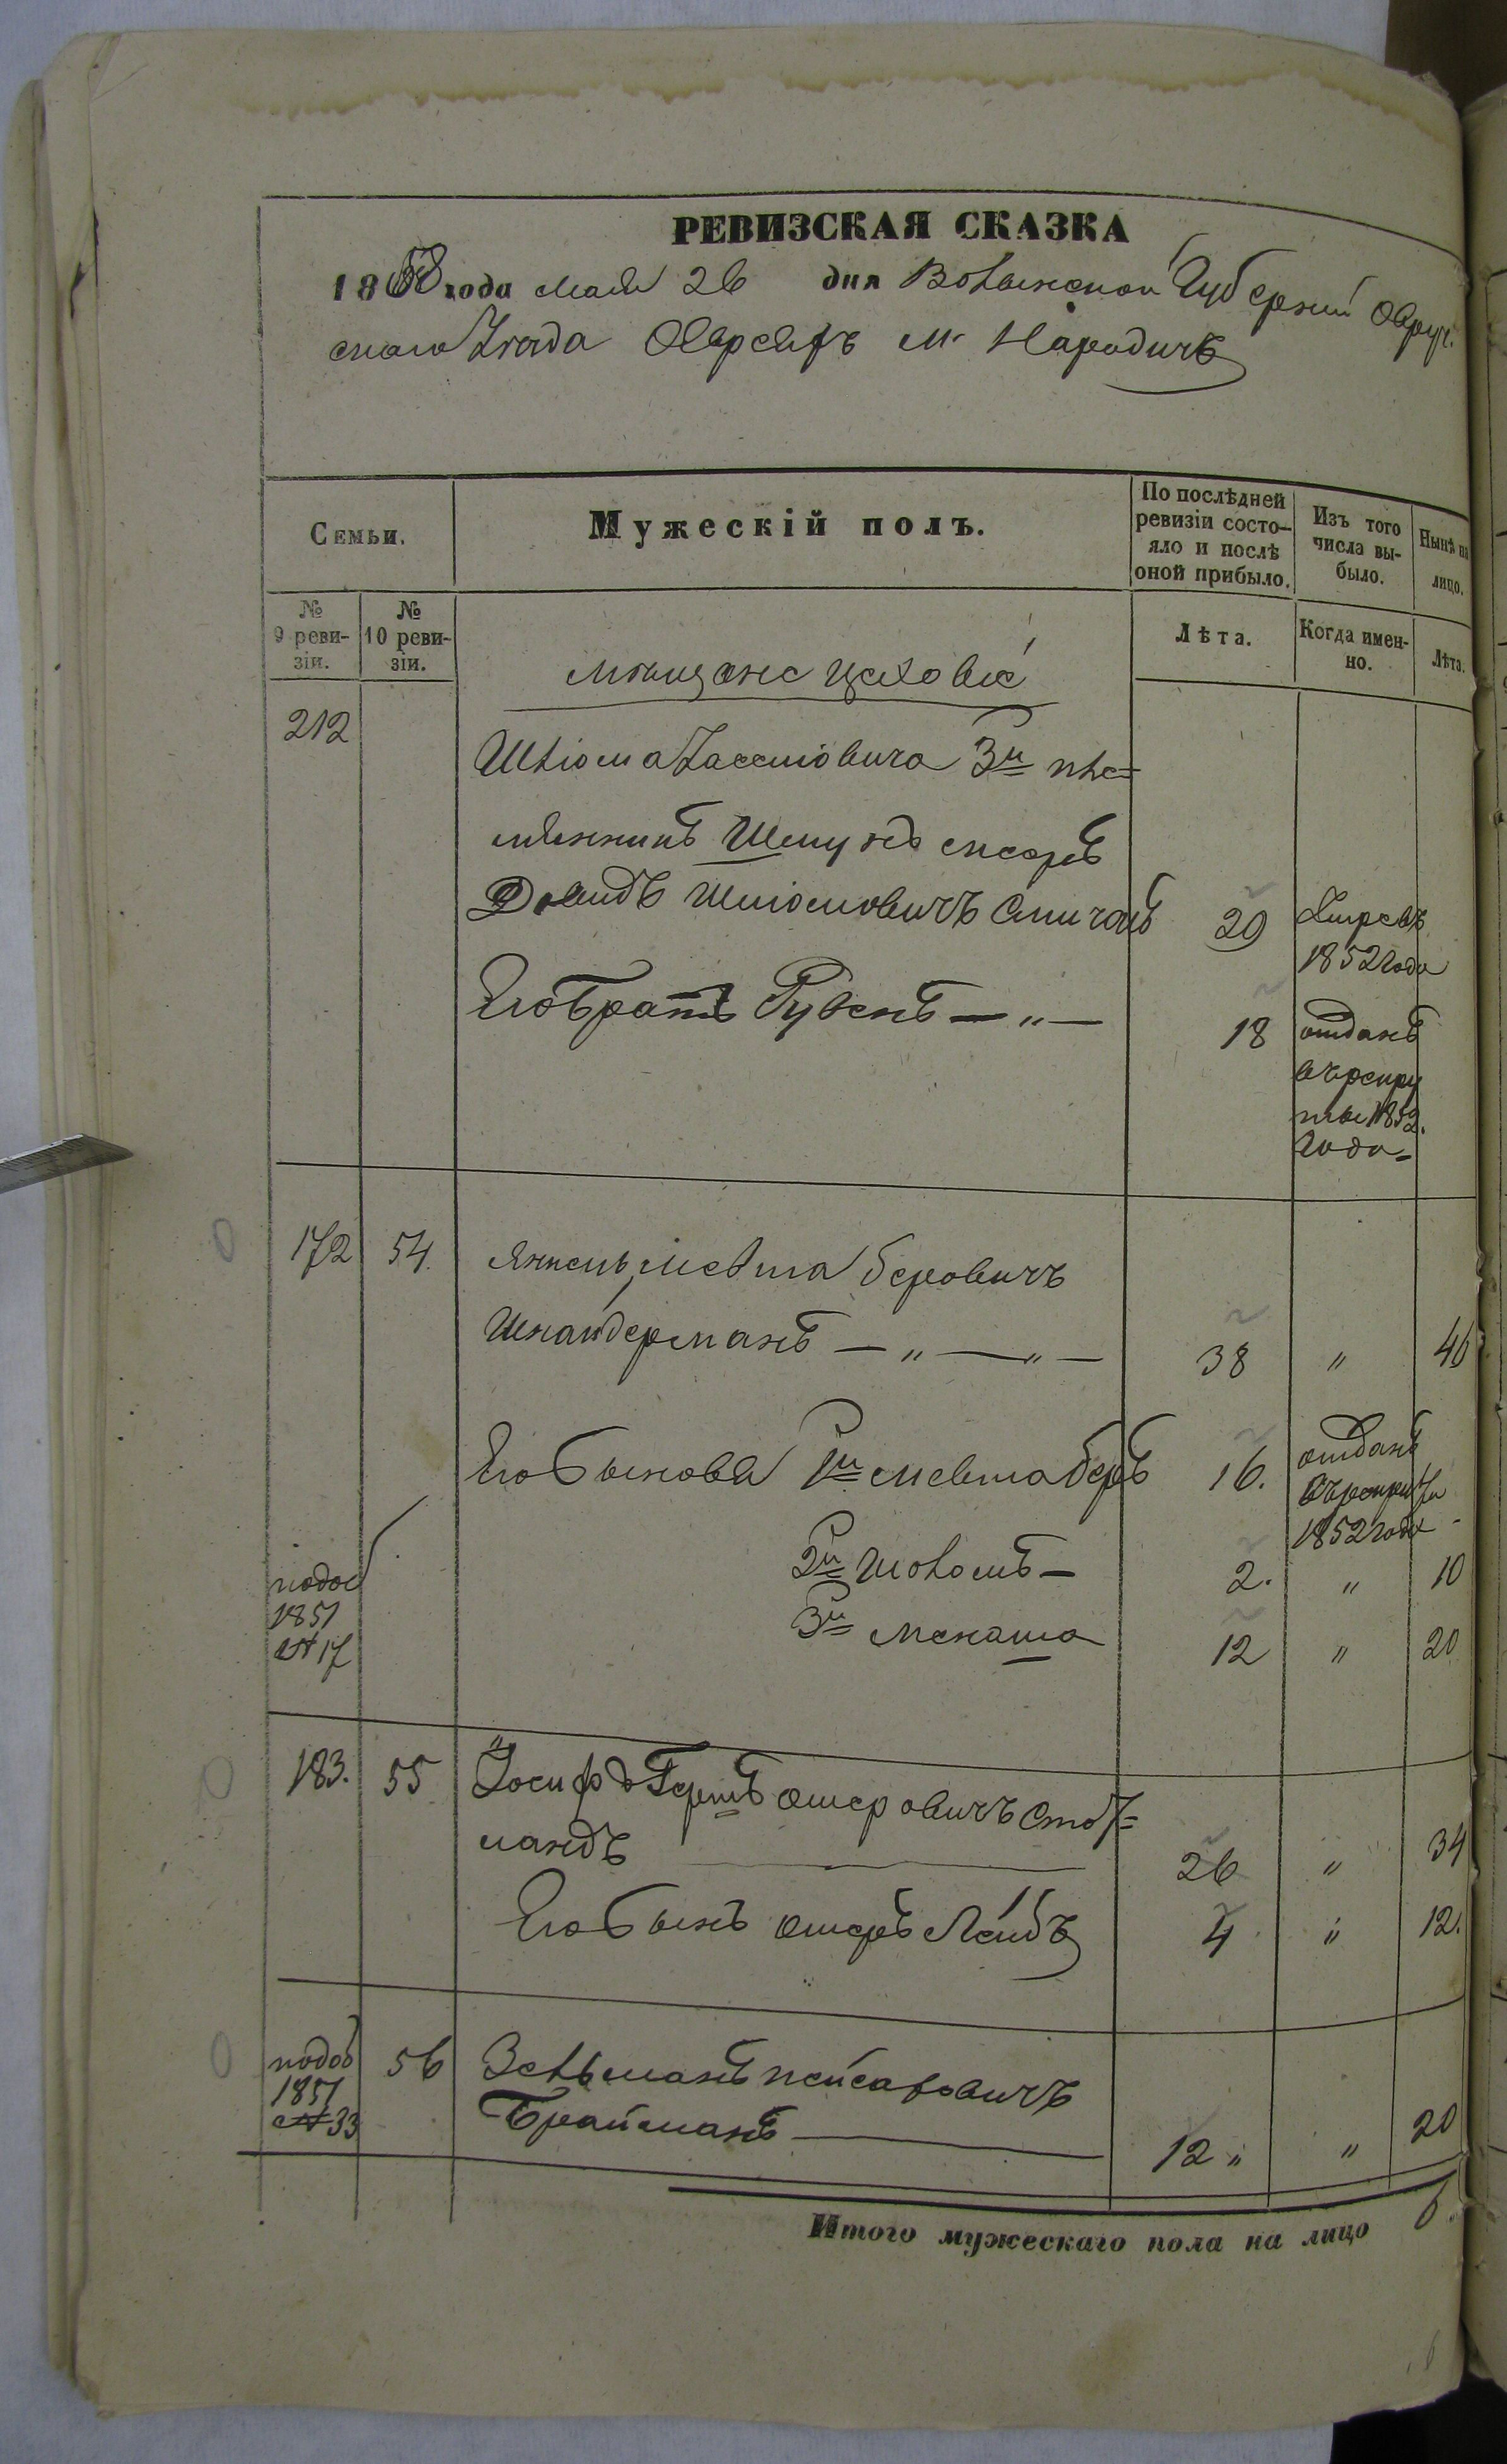 РЕВИЗСКАЯ СКАЗКА
1858 года мая 26 дня Волынской Губерніи Овруч.
скаго Уезда Евреевъ м. Народичъ
Семьи.
Мужескій полъ.
По послѣдней ревизіи состо-
яло и послѣ
оной прибыло.
Изъ того
числа вы-
было.
Нынѣ на
лицо.
№
9 реви-
зіи.
№
10 реви-
зіи.
Лѣта.
Когда имен-
но.
Лѣта.
мѣщане цеховые
212
Шліома 3й пле=
мянникъ
Давидъ Шліомовичъ
29
Умре въ
1852 года
Его братъ Рувенъ — " —
18
отданъ
въ рекру
ты 1852.
года
172
54.
Янкель Мевша Беровичъ
Шнайдерманъ — " — " —
38
"
46
Его Сыновя 1й Мевша Беръ
16.
отданъ
въ рекруты
1852 года
2й Шоломъ —
2.
"
10
3й Менаша
12
"
20
1851
№ 17
183.
55
Іосифъ Гершъ Ошеровичъ
26
"
34
Его Сынъ Ошеръ Лейбъ
4
"
12.
1851
№ 33
56
Зельманъ Пейсаховичъ
Брайманъ
12 "
"
20
Итого мужескаго пола на лицо 6.